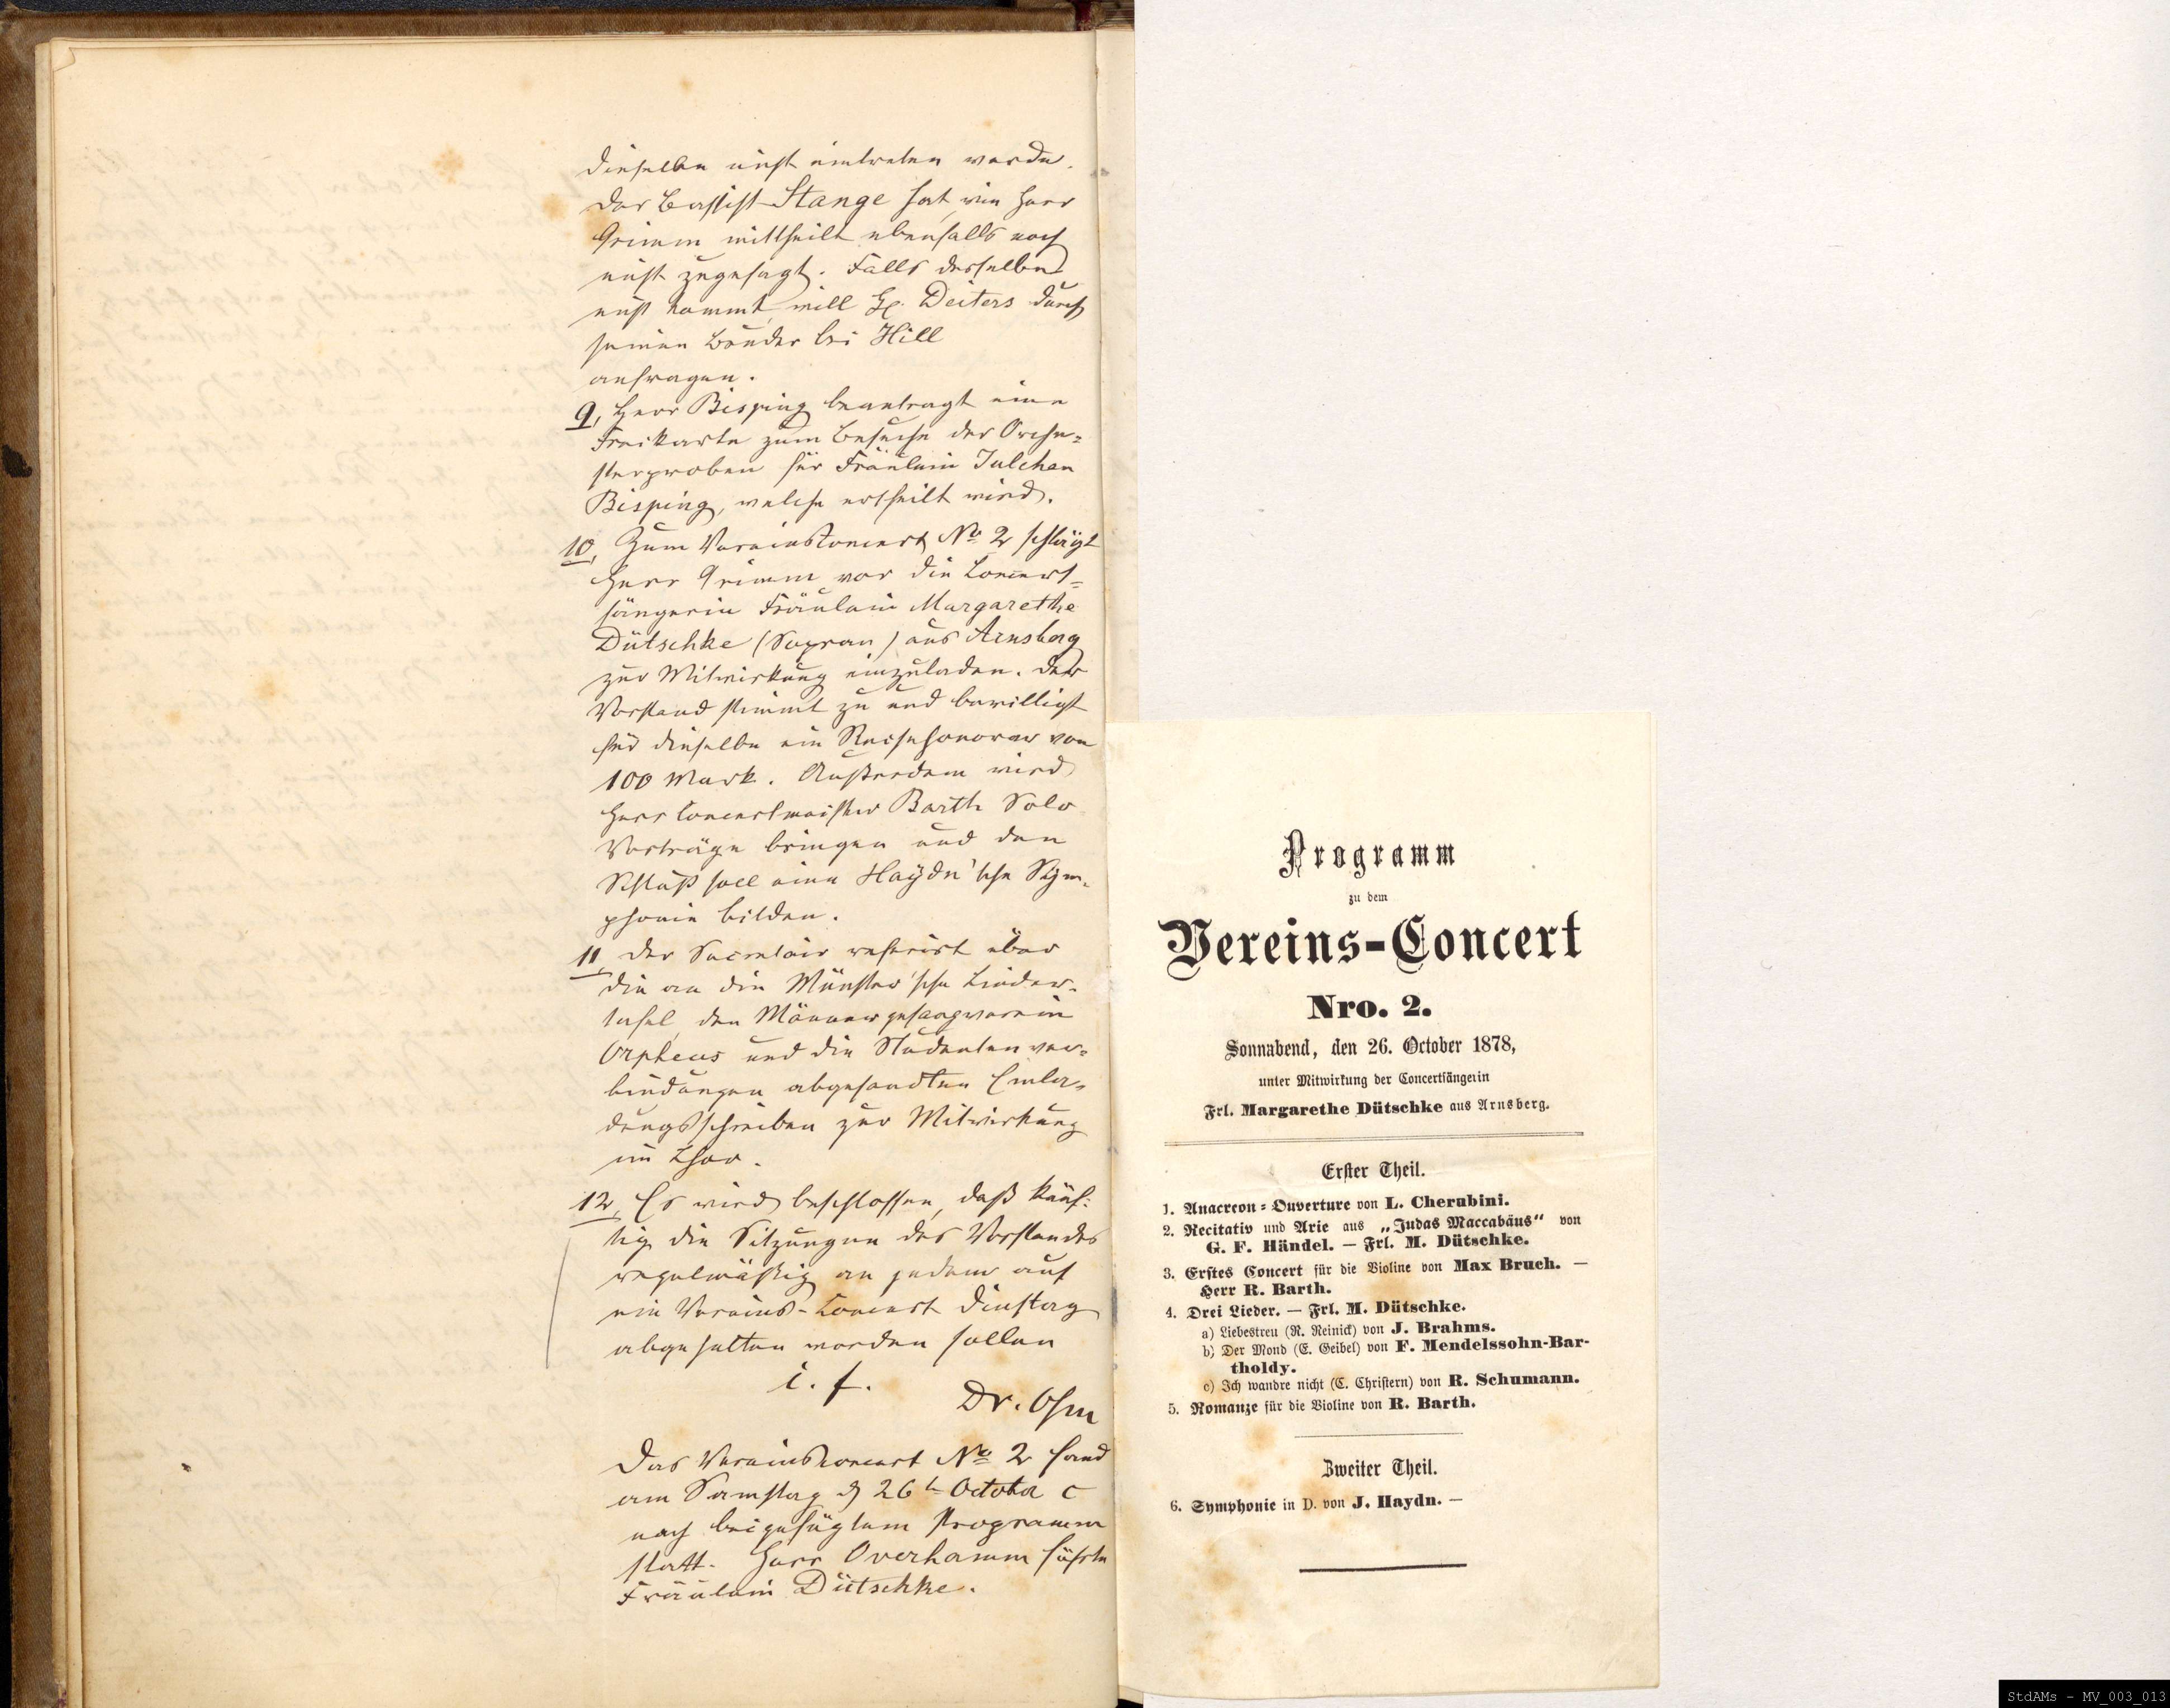 dieselbe nicht eintreten werde.
Der Bassist Stange hat, wie Herr
Grimm mittheilt ebenfalls noch
nicht zugesagt. Falls derselbe
nicht kommt, will H. Deiters durch
seinen Bruder bei Hill
anfragen.
9, Herr Bisping beantragt eine
Freikarte zum Besuche der Orche=
sterproben für Fräulein Julchen
Bisping, welche ertheilt wird.
10, Zum Vereinsconcert No 2 schlägt
Herr Grimm vor die Concert=
sängerin Fräulein Margarethe
Dütschke (Sopran) aus Arnsberg
zur Mitwirkung einzuladen. Der
Vorstand stimmt zu und bewilligt
für dieselbe ein Reisehonorar von
100 Mark. Außerdem wird
Herr Concertmeister Barth Solo
Vorträge bringen und den
Schluß soll eine Haydn'sche Sym=
phonie bilden.
11, Der Secretair referirt über
die an die Münster'sche Lieder=
tafel, den Männergesangverein
Orpheus und die Studentenver=
bindungen abgesandten Einla=
dungsschreiben zur Mitwirkung
im Chor.
12, Es wird beschlossen, daß künf=
tig die Sitzungen des Vorstandes
regelmäßig an jedem auf
ein Vereins-Concert Dinstag
abgehalten werden sollen
i. f.
Dr.
Das Vereinsconcert No 2 fand
am Samstag d 26t October c
nach beigefügtem Programm
statt. Herr Overhamm führte
Fräulein Dütschke.
Programm
zu dem
Vereins-Concert
Nro. 2.
Sonnabend, den 26. October 1878,
unter Mitwirkung der Concertsängerin
Frl. Margarethe Dütschke aus Arnsberg.
Erster Theil.
1. Anacreon=Ouverture von L. Cherubini.
2. Recitativ und Arie aus „Judas Maccabäus“ von
G. F. Händel. — Frl. M. Dütschke.
3. Erstes Concert für die Violine von Max Bruch. —
Herr R. Barth.
4. Drei Lieder. — Frl. M. Dütschke.
a) Liebestreu (R. Reinick) von J. Brahms.
b) Der Mond (E. Geibel) von F. Mendelssohn-Bar-
tholdy.
c) Ich wandre nicht (C. Christern) von R. Schumann.
5. Romanze für die Violine von R. Barth.
Zweiter Theil.
6. Symphonie in D. von J. Haydn. —
StdAMs - MV_003_013